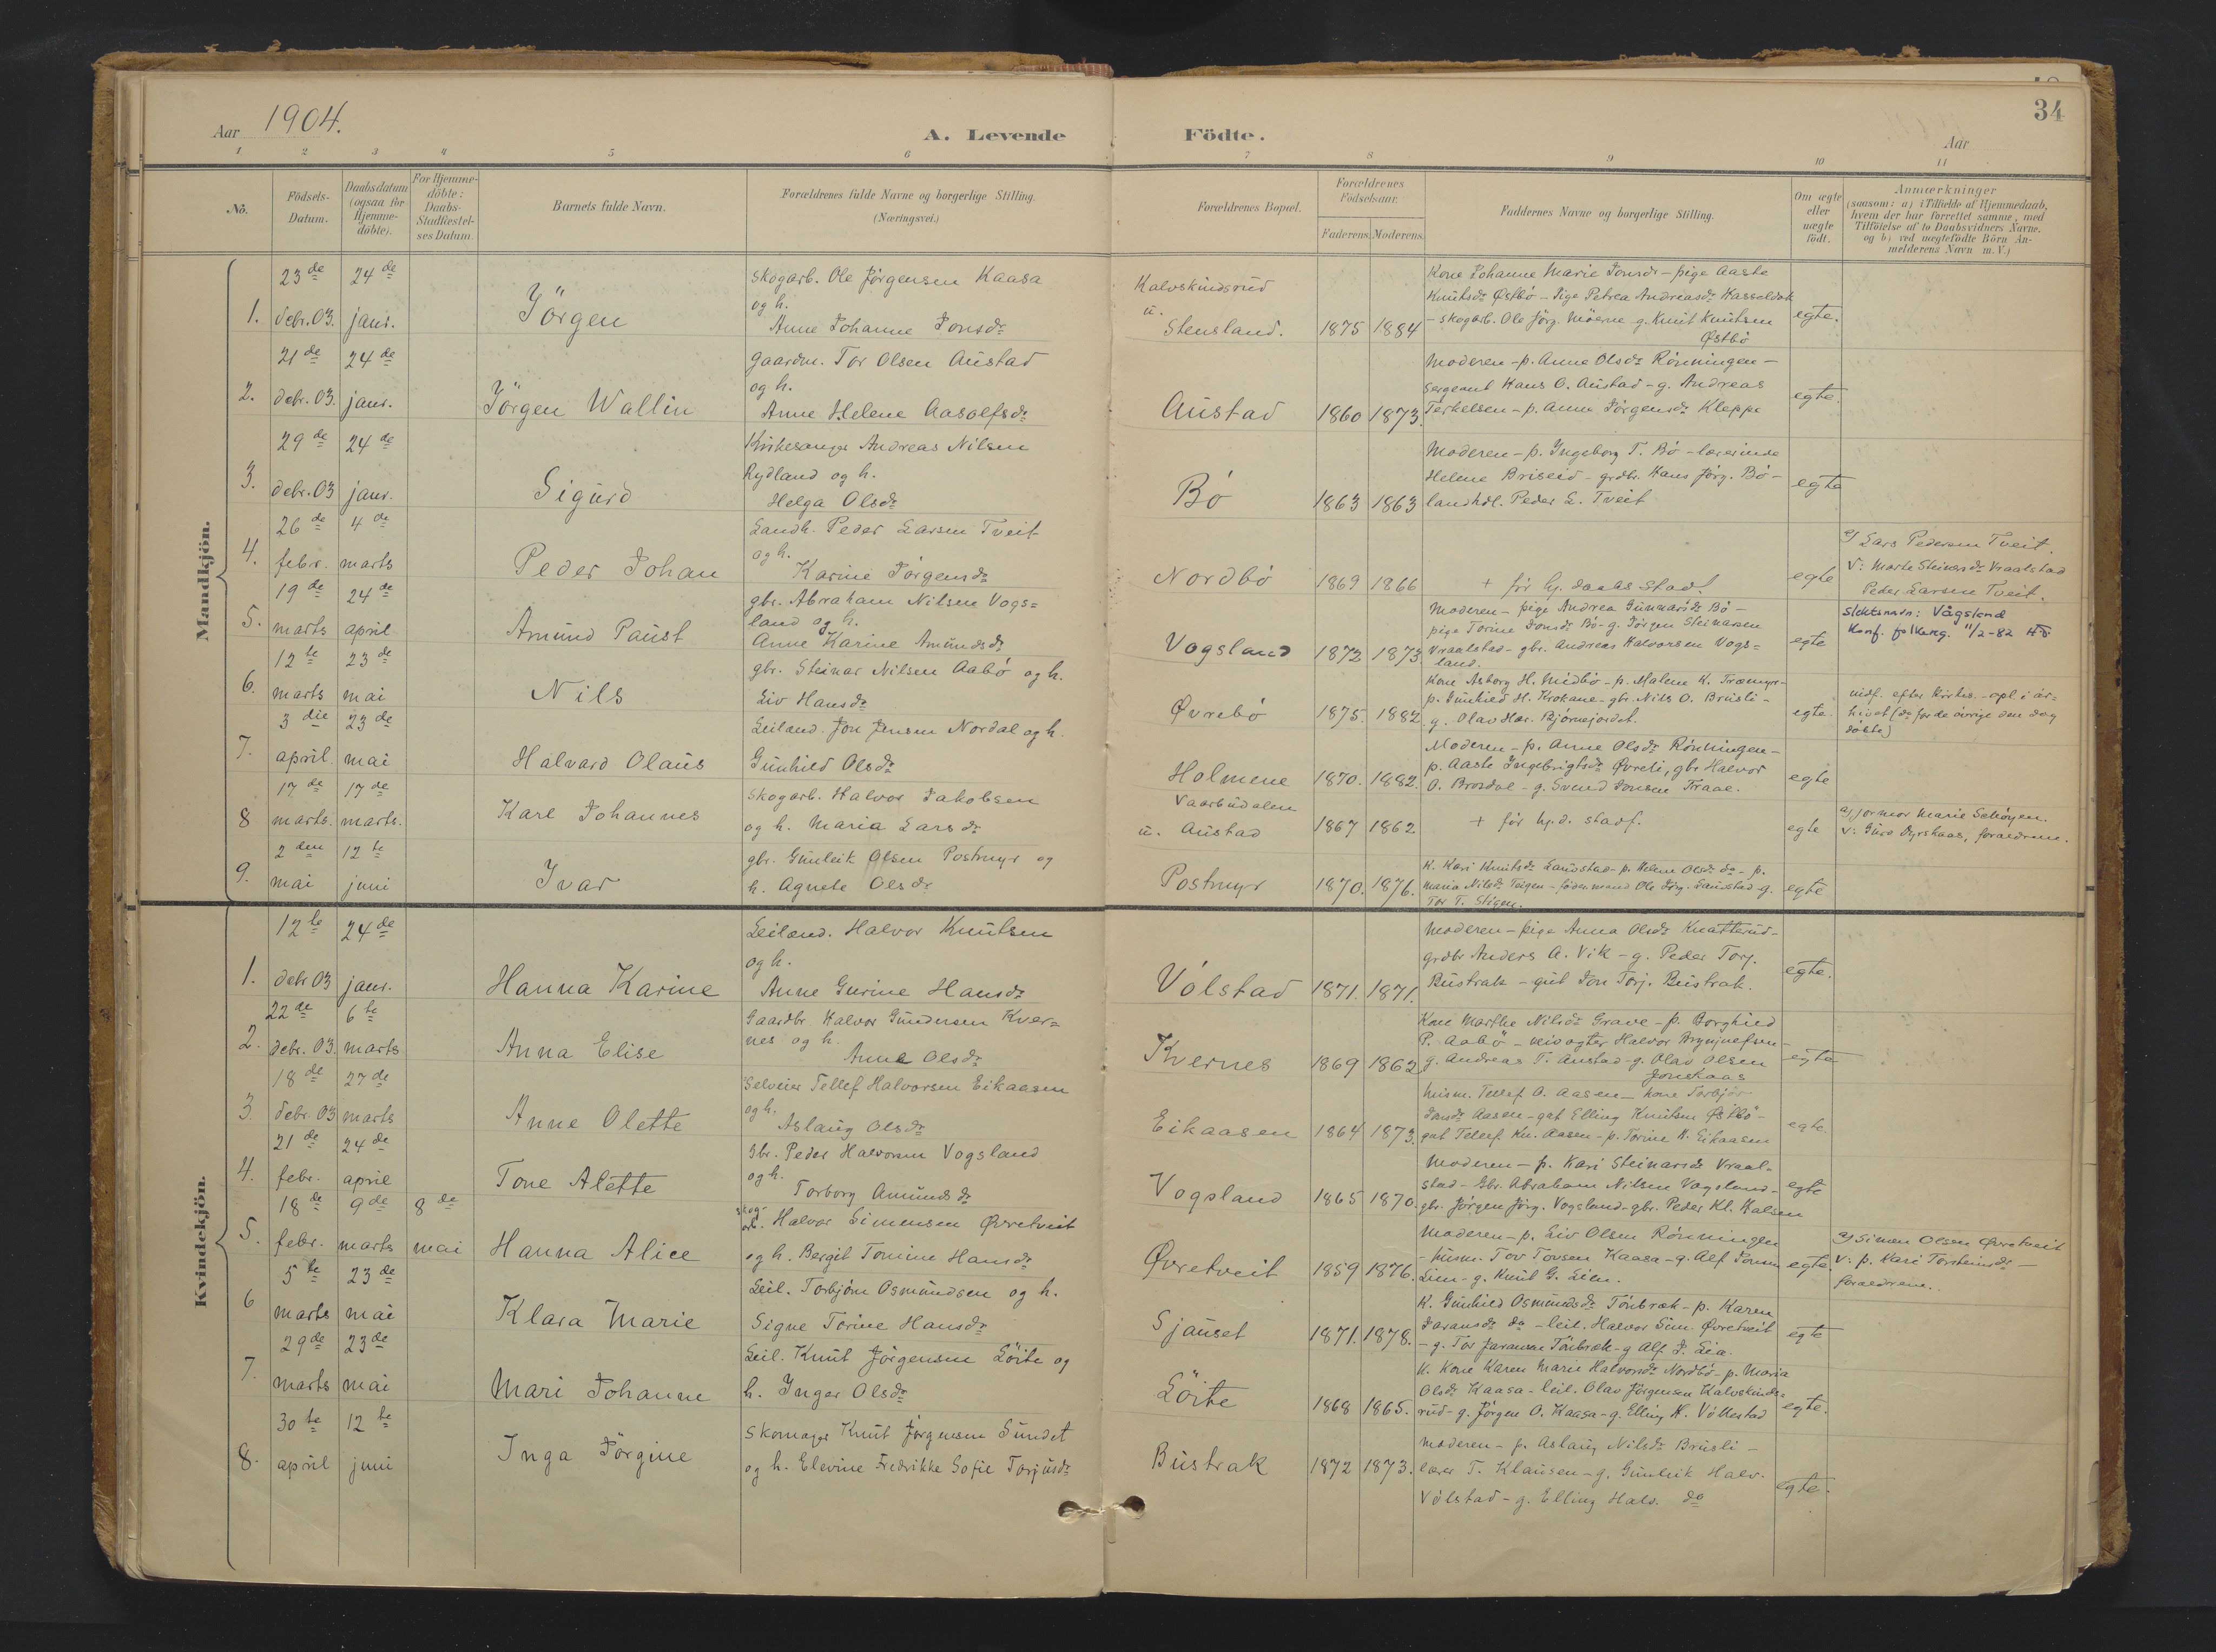 34
Aar 1904.
A. Levende Födte.
Aar
1 2 3 4 5 6 7 8 9 10 11
No.
Födsels-Datum.
Daabsdatum (ogsaa for Hjemme-döbte).
For Hjemme-döbte: Daabs-Stadfæstel-ses Datum.
Barnets fulde Navn.
Forældrenes fulde Navne og borgerlige Stilling. (Næringsvei.)
Forældrenes Bopæl.
Forældrenes Födselsaar.
Faderens. Moderens.
Faddernes Navne og borgerlige Stilling.
Om ægte eller uægte födt.
Anmærkninger
(saasom: a) i Tilfælde af Hjemmedaab,
hvem der har forrettet samme, med
Tilföielse af to Daabsvidners Navne.
og b) ved uægtefödte Börn An-
melderens Navn m. V.)
Mandkjön.
1. 23de debr. 03. 24de janr. Jörgen
Skogarb. Ole Jörgensen Kaasa
og h.
Anne Johanne Jonsdr
Kalvskindsrud
u.
Stensland. 1875 1884
Kone Johanne Marie Jonsdr - pige Aaste
Knutsdr Østbö - Pige Petrea Andreasdr Hasseldok
- skogarb. Ole Jörg. Moerne g. Knut Knutsen
Østbö
egte.
2. 21de debr. 03. 24de janr. Jörgen Wallin
Gaardm. Tor Olsen Austad
og h.
Anne Helene Aasolfsdr
Austad 1860 1873.
Moderen - p. Anne Olsdr Rönningen -
Sergeant Hans O. Austad - g. Andreas
Terkelsen - p. Anne Jörgensdr Kleppe
egte.
3. 29de debr. 03 24de janr. Sigurd
Kirkesanger Andreas Nilsen
Rydland og h.
Helga Olsdr
Bö 1863 1863
Moderen - p. Ingeborg T. Bö - lærerinde
Helene Briseid - grdbr. Hans Jörg. Bö -
landhdl. Peder L. Tveit
egte
4. 26de febr. 4de marts Peder Johan
Landh. Peder Larsen Tveit
og h.
Karine Jörgensdr
Nordbö 1869 1866
+ för hj. daabs stadf.
egte
a) Lars Pedersen Tveit.
V: Marte Steinarsdr Vraalstad
Peder Larsen Tveit.
5. 19de marts 24de april Amund Paust
gbr. Abraham Nilsen Vogs=
land og h.
Anne Karine Amundsdr
Vogsland 1872 1873
Moderen - pige Andrea Gunnarsdr Bö -
pige Torine Jonsdr Bö - g. Jörgen Steinarsen
Vraalstad - gbr. Andreas Halvorsen Vogs=
land.
egte
Slektsnavn: Vågsland
Konf. folkereg. 11/2-82
6. 12te marts 23de mai Nils
gbr. Steinar Nilsen Aabö og h.
Liv Hansdr
Øvrebö 1875. 1882.
Kone Asborg H. Midbö - p. Malene K. Træmyr -
p. Gunhild H. Krokane - gbr. Nils O. Brusli -
g. Olav Har. Bjørnejordet.
egte.
7. 3die april 23de mai Halvard Olaus
Leiland. Jon Jensen Nordal og h.
Gunhild Olsdr
Holmene 1870. 1882.
Moderen - p. Anne Olsdr Rönningen -
p. Aaste Ingebrigtsdr Øvreli, gbr Halvor
O. Brosdal - g. Svend Jonsen Traae.
egte
8 17de marts. 17de marts. Karl Johannes
Skogarb. Halvor Jakobsen
og h. Maria Larsdr
Vaarbudalen
u. Austad 1867 1862
+ för hj.d. stadf.
egte
a) jormor Marie Schöyen.
V: Guro Dyrskaas, foraeldrene.
9. 2den mai 12te juni Ivar
gbr. Gunleik Olsen Postmyr og
h. Agnete Olsdr
Postmyr 1870. 1876.
K. Kari Knutsdr Laudstad - p. Helene Olsdr do - p.
Maria Nilsdr Teigen - föderaand Ole Jörg. Laudstad - g.
Tor T. Stigen.
egte
Kvindekjön.
1. 12te debr 03 24de janr. Hanna Karine
Leilænd. Halvor Knutsen
og h.
Anne Gurine Hansdr
Völstad 1871. 1871.
Moderen - pige Anna Olsdr Knatterud -
grdbr Anders A. Vik - g. Peder Torj.
Bustrak - gut Jon Torj. Bustrak.
egte.
2. 22de debr. 03. 6te marts Anna Elise
Gaardbr. Halvor Gundersen Kver=
nes og h.
Anne Olsdr
Kvernes 1869 1862
Kone Marthe Nilsdr Grave - p. Borghild
P. Aabö - veivogter Halvor Brynjuefsen -
g. Andreas T. Austad - g. Olav Olsen
Jonskaas
egte
3 18de debr. 03 27de marts Anne Olette
Selveier Tellef Halvorsen Eikaasen
og h.
Aslaug Olsdr
Eikaasen 1864 1873.
husm. Tellef O. Aasen - kone Torbjör
Jonsdr Aasen - gut Elling Knutsen Østbö -
gut Tellef Kn. Aasen - p. Torine H. Eikaasen
egte
4. 21de febr. 24de april Tone Alette
Gbr. Peder Halvorsen Vogsland
og h.
Torborg Amundsdr
Vogsland 1865 1870.
Moderen - p. Kari Steinarsdr Vraal=
stad - Gbr. Abraham Nilsen Vogsland -
gbr. Jörgen Jörg. Vogsland - gbr. Peder Kl. Kalsen
egte
5. 18de febr. 9de marts 8de mai Hanna Alice
skog-
arb. Halvor Simensen Øvretveit
og h. Bergit Tomine Hansdr
Øvretveit 1859 1876.
Moderen - p. Liv Olsen Rönningen
- husm. Tov Tovsen Kaasa - g. Alf Jonsen
Lien - g. Knut G. Lien.
egte.
a) Simen Olsen Øvretveit
V: p. Kari Torsteinsdr -
foraeldrene.
6 5te marts 23de mai Klara Marie
Leil. Torbjörn Osmundsen og h.
Signe Torine Hansdr
Sjauset 1871. 1878.
K. Gunhild Osmundsdr Tönbræk - p. Karen
Jaransdr do - leil. Halvor Sim. Øvretveit
- g. Tor Jaransen Tönbræk - g Alf J. Lia.
egte
7. 29de marts 23de mai Mari Johanne
Leil. Knut Jörgensen Löite og
h. Inger Olsdr
Löite 1868 1865.
K. Kone Karen Marie Halvorsdr Nordbö - p. Maria
Olsdr Kaasa - leil. Olav Jörgensen Kalvskinds=
rud - g. Jörgen O. Kaasa - g. Elling H. Völlestad
egte.
8. 30te april 12te juni Inga Jörgine
Skomager Knut Jörgensen Sundet
og h. Elevine Fredrikke Sofie Torjusdr
Bustrak 1872 1873.
Moderen - p. Aslaug Nilsdr Brusli -
lærer T. Klausen - g. Gunleik Halv.
Völstad - g. Elling Halv. do
egte.